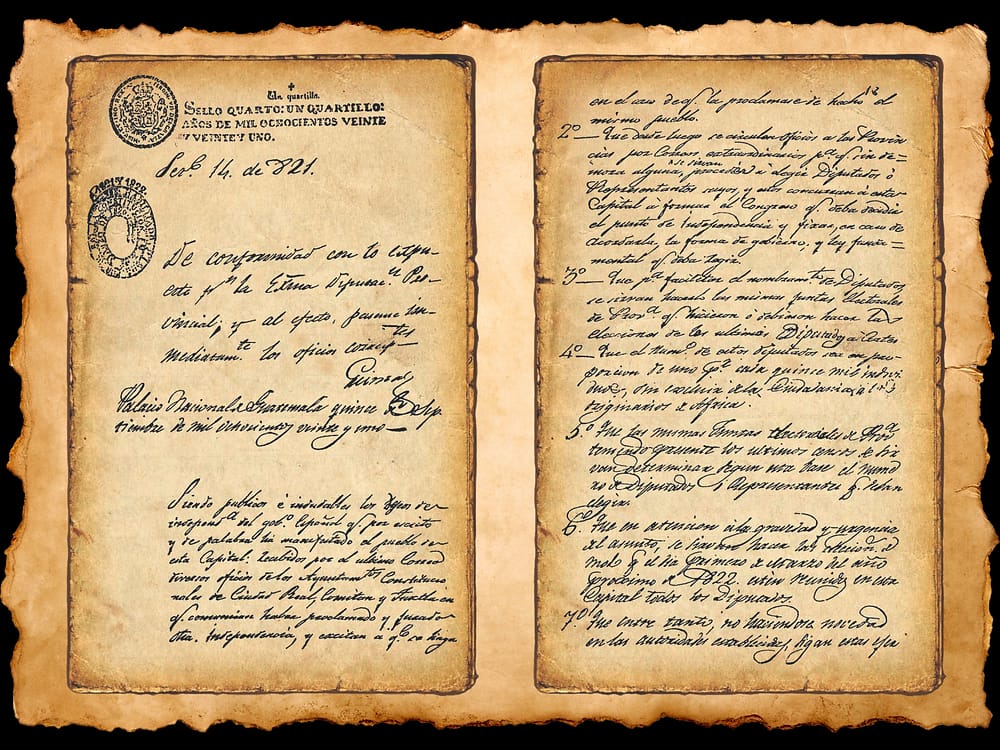 Un quartillo.
SELLO QUARTO: UN QUARTILLO:
AÑOS DE MIL OCHOCIENTOS VEINTE
Y VEINTE Y UNO.
14. de 821.
De conformidad con lo expu-
esto pr. la Exma Diputac.n Pro-
vincial; y al efecto, pasense in-
mediatam.te los oficios
Palacio Nacional de Guatemala quince de Sep-
tiembre de mil ochocientos veinte y uno
Siendo publicos é indudables los deseos de
independ.ª del gob.º Español q. por escrito
y de palabra ha manifestado el pueblo de
esta Capital: recibidos por el ultimo Correo
diversos oficios de los Ayuntam.tos Constitucio-
nales de Ciudad Real, Comitan y Tuxtla en
q. comunican haber proclamado y jurado
dha. independencia, y excitan a q.e se haga
en el caso de q. la proclamase de hecho el
mismo pueblo.
2º — Que desde luego se circulen oficios a las Provin-
cias por Correos extraordinarios p.ª q. sin de-
mora alguna, se sirvan proceder a elegir Diputados ó
Representantes suyos, y estos concurran a esta
Capital á formar el Congreso q. deba decidir
el punto de Independencia y fixar, en caso de
acordarla, la forma de gobierno, y ley funda=
mental q. deba regir.
3º — Que p.ª facilitar el nombram.to de Diputados,
se sirvan hacerlo las mismas Juntas Electorales
de Prov.ª q. hicieron ó debieron hacer las
elecciones de los ultimos Diputados a Cortes
4º — Que el Num.º de estos diputados sea en pro-
porcion de uno p.r cada quince mil indivi-
duos, sin excluir de la Ciudadania á los
originarios de Africa.
5.º Que las mismas Juntas electorales de Prov.ª
teniendo presente los ultimos censos se sir
van determinar segun esta base el nume
ro de Diputados ó Representantes q. deban
elegir.
6º Que en atencion á la gravedad y urgencia
del asunto, se sirvan hacer las eleccion.s de
modo q. el dia primero de marzo del año
proximo de 1822 esten reunidos en esta
Capital todos los Diputados.
7º Que entre tanto, no haciendose novedad
en las autoridades establecidas, sigan estas